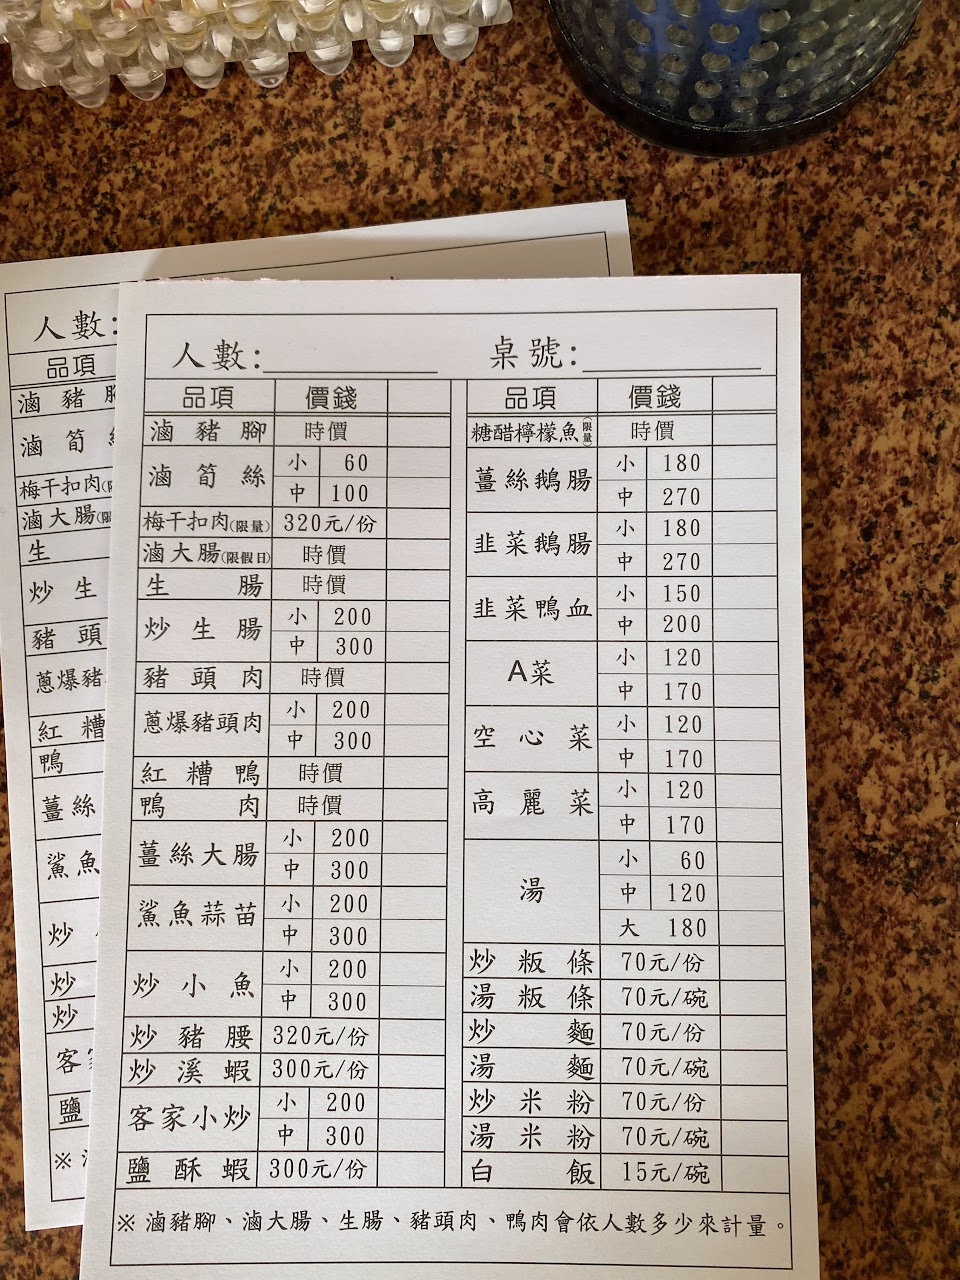 人數:
品項
滷豬
滷筍
梅干扣肉
滷大腸
生
炒生
豬頭
蔥爆豬
紅糟
鴨
薑絲
鯊魚
炒
炒
炒
客家
鹽
※
人數: 桌號:
品項 價錢
滷豬腳 時價
滷筍絲 小 60
中 100
梅干扣肉(限量) 320元/份
滷大腸(限假日) 時價
生腸 時價
炒生腸 小 200
中 300
豬頭肉 時價
蔥爆豬頭肉 小 200
中 300
紅糟鴨 時價
鴨肉 時價
薑絲大腸 小 200
中 300
鯊魚蒜苗 小 200
中 300
炒小魚 小 200
中 300
炒豬腰 320元/份
炒溪蝦 300元/份
客家小炒 小 200
中 300
鹽酥蝦 300元/份
品項 價錢
糖醋檸檬魚(限量) 時價
薑絲鵝腸 小 180
中 270
韭菜鵝腸 小 180
中 270
韭菜鴨血 小 150
中 200
A菜 小 120
中 170
空心菜 小 120
中 170
高麗菜 小 120
中 170
湯 小 60
中 120
大 180
炒粄條 70元/份
湯粄條 70元/碗
炒麵 70元/份
湯麵 70元/碗
炒米粉 70元/份
湯米粉 70元/碗
白飯 15元/碗
※滷豬腳、滷大腸、生腸、豬頭肉、鴨肉會依人數多少來計量。